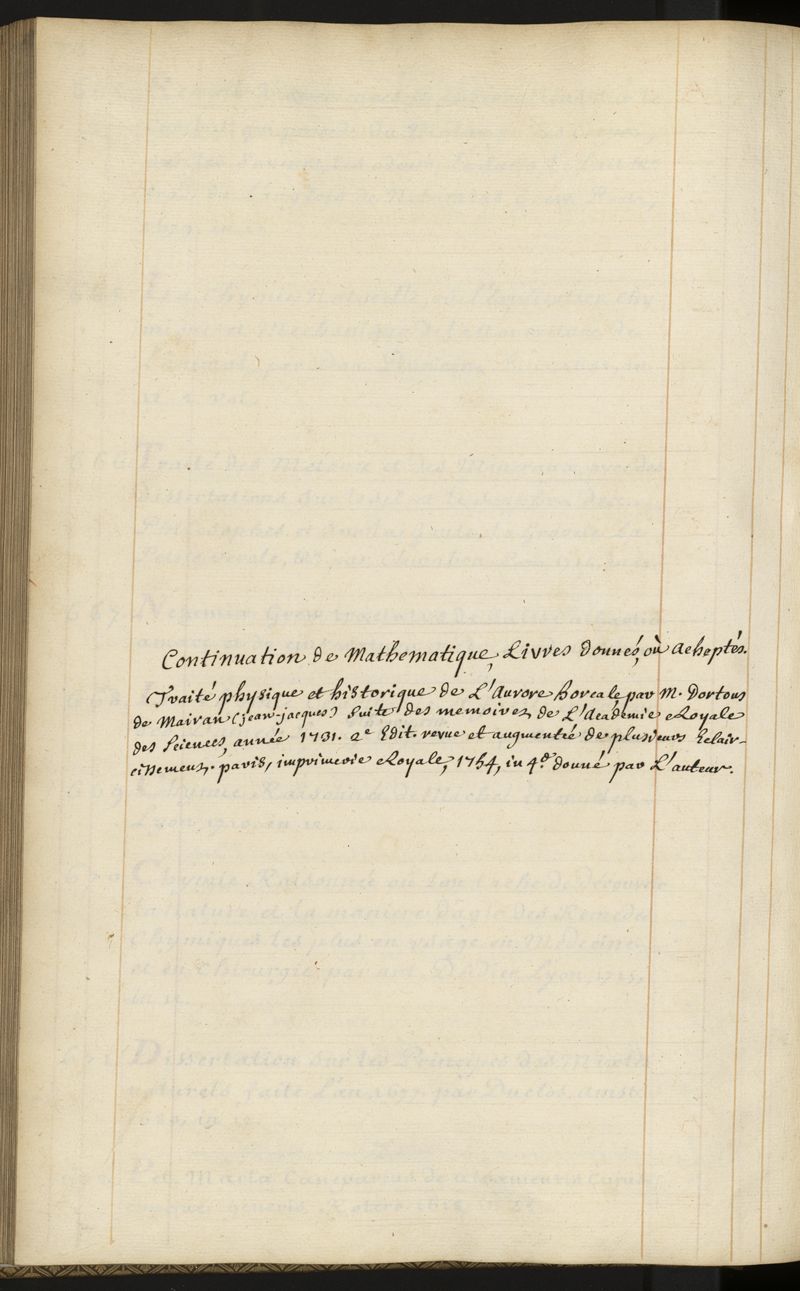 Continuation de Mathematique, Livres donnés, où acheptés.
Traité physique et historique de L'Aurore boreale par M. Dortous
de Mairan (jean-jacques) Suite des memoires de L'Academie Royale
des Sciences, année 1731. 2e Edit. revue et augmentée de plusieurs Eclair-
cissemens. paris, imprimerie Royale, 1754, in 4.o donné par L'auteur.